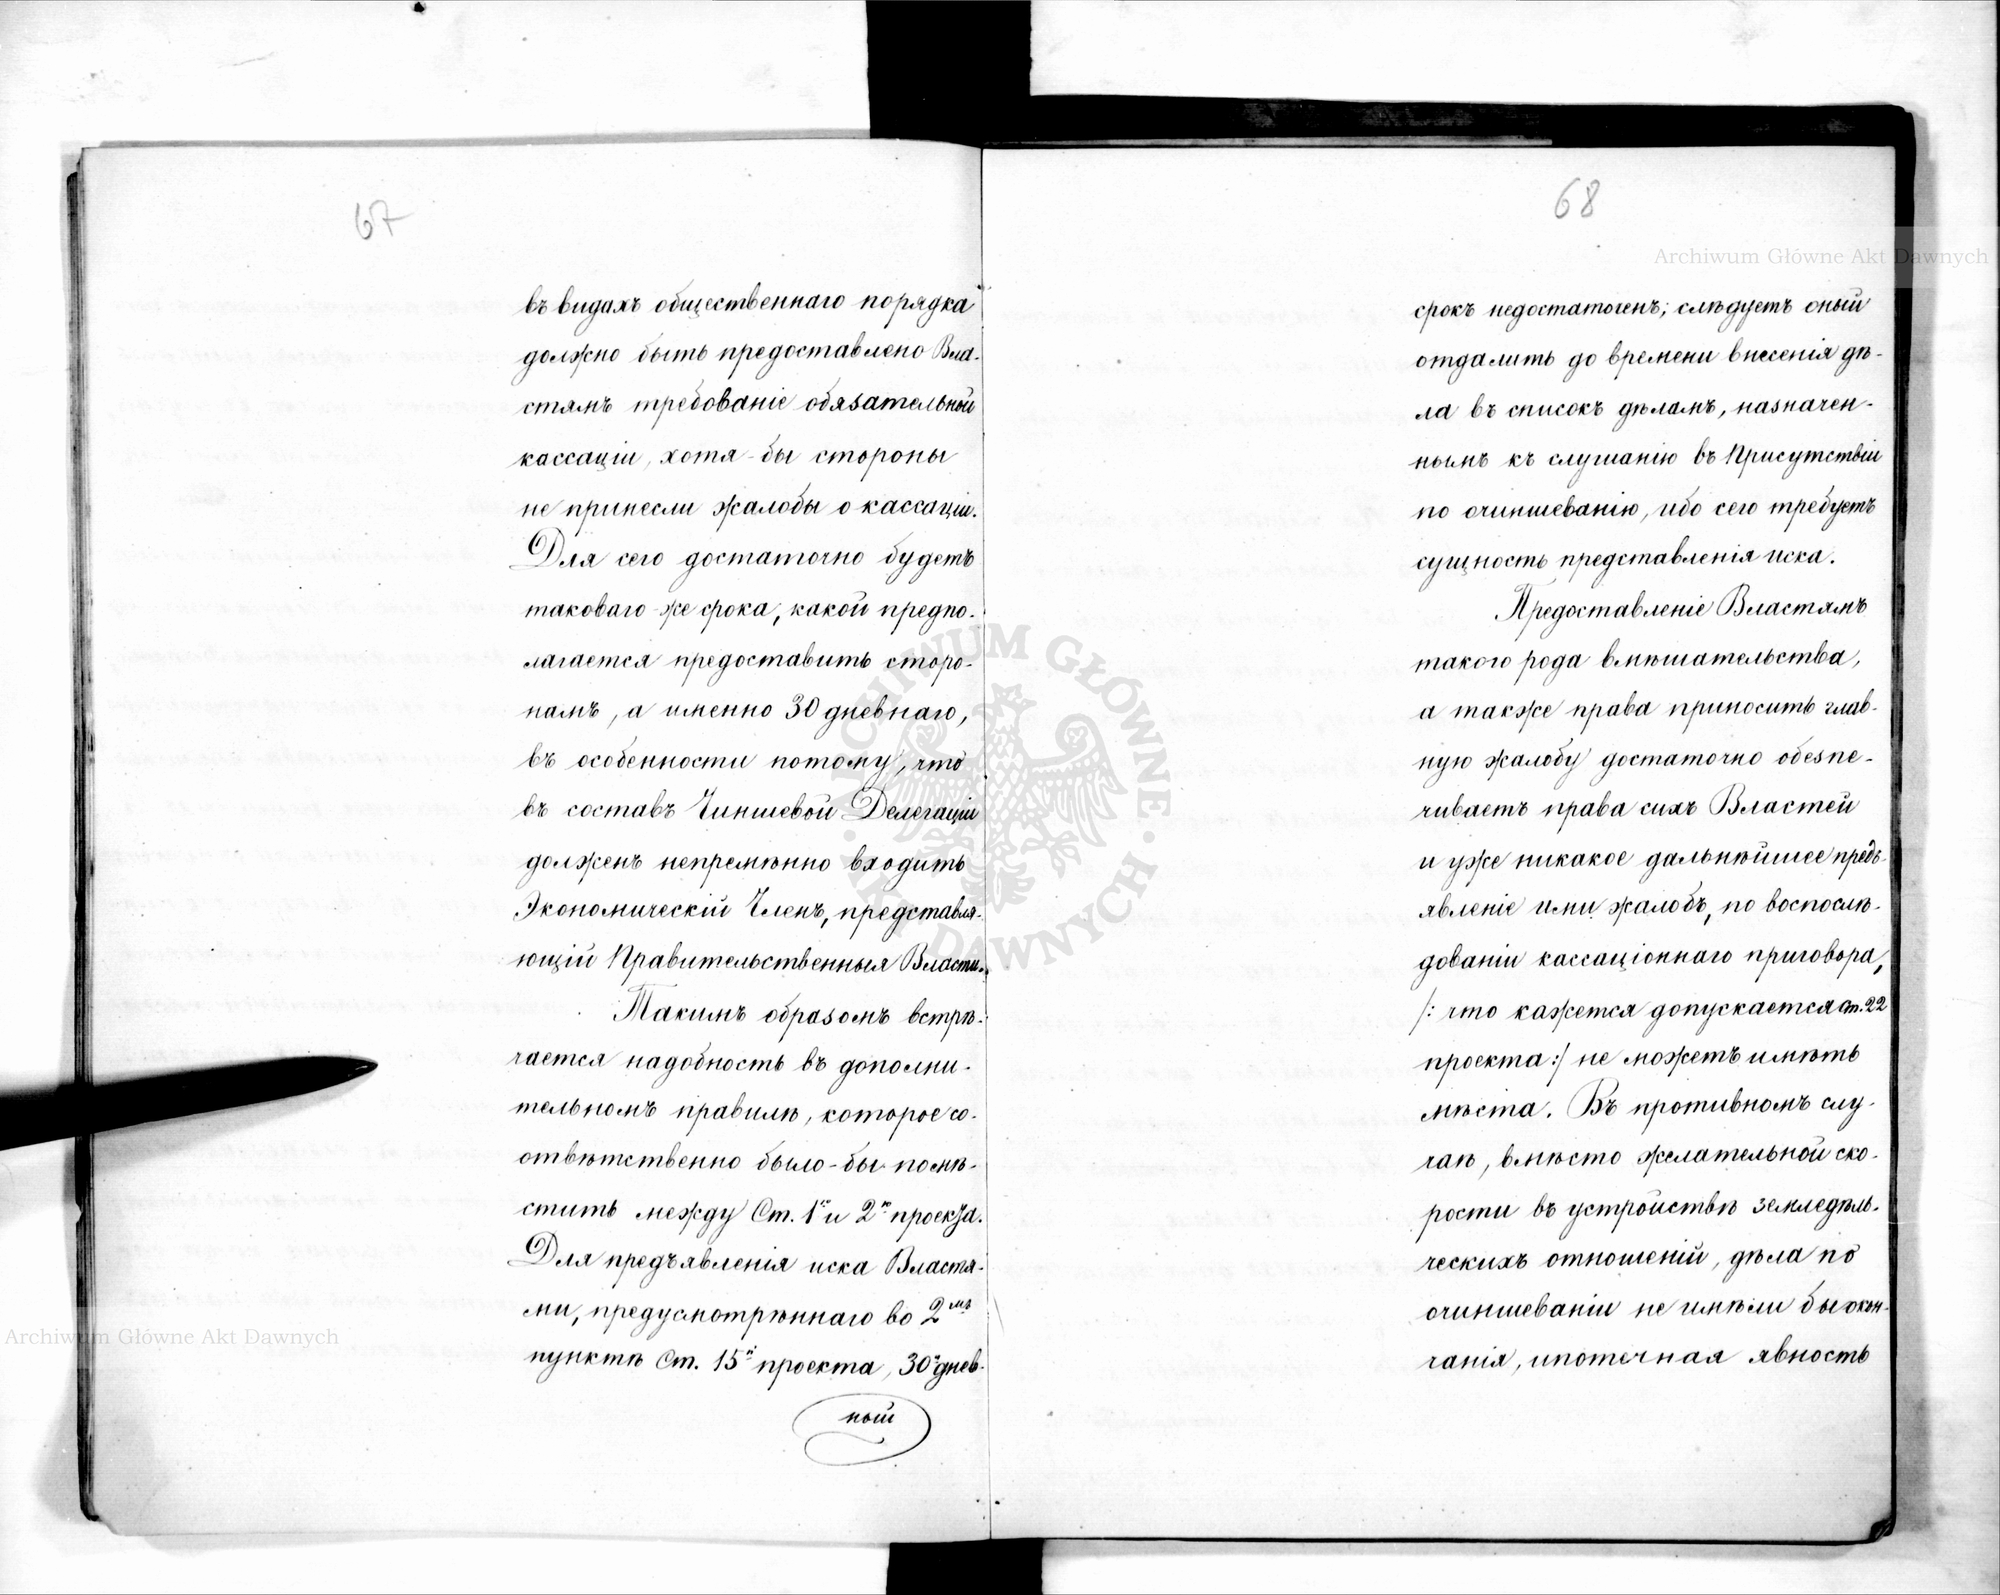 67
въ видахъ общественнаго порядка
должно быть предоставлено Вла-
стямъ требованіе обязательной
кассаціи, хотя-бы стороны
не принесли жалобы о кассаціи.
Для сего достаточно будетъ
таковаго-же срока, какой предпо-
лагается предоставить сторо-
намъ, а именно 30 дневнаго,
въ особенности потому, что
въ составъ Чиншевой Делегаціи
долженъ непремѣнно входить
Экономическій Членъ, представля-
ющій Правительственныя Власти.
Такимъ образомъ встрѣ-
чается надобность въ дополни-
тельномъ правилѣ, которое со-
отвѣтственно было-бы помѣ-
стить между Ст. 1й и 2й проекта.
Для предъявленія иска Властя-
ми, предусмотрѣннаго во 2мъ
пунктѣ Ст. 15й проекта, 30 днев-
ный
68
срокъ недостаточенъ; слѣдуетъ оный
отдалить до времени внесенія дѣ-
ла въ списокъ дѣламъ, назначен-
нымъ къ слушанію въ Присутствіи
по очиншеванію, ибо сего требуетъ
сущность представленія иска.
Предоставленіе Властямъ
такого рода вмѣшательства,
а также права приносить глав-
ную жалобу достаточно обезпе-
чиваетъ права сихъ Властей
и уже никакое дальнѣйшее предъ-
явленіе ими жалобъ, по воспослѣ-
дованіи кассаціоннаго приговора,
/: что кажется допускается ст. 22
проекта :/ не можетъ имѣть
мѣста. Въ противномъ слу-
чаѣ, вмѣсто желательной ско-
рости въ устройствѣ земледѣль-
ческихъ отношеній, дѣла по
очиншеваніи не имѣли бы окон-
чанія, ипотечная явность
Archiwum Główne Akt Dawnych
Archiwum Główne Akt Dawnych
ARCHIWUM GŁÓWNE AKT DAWNYCH